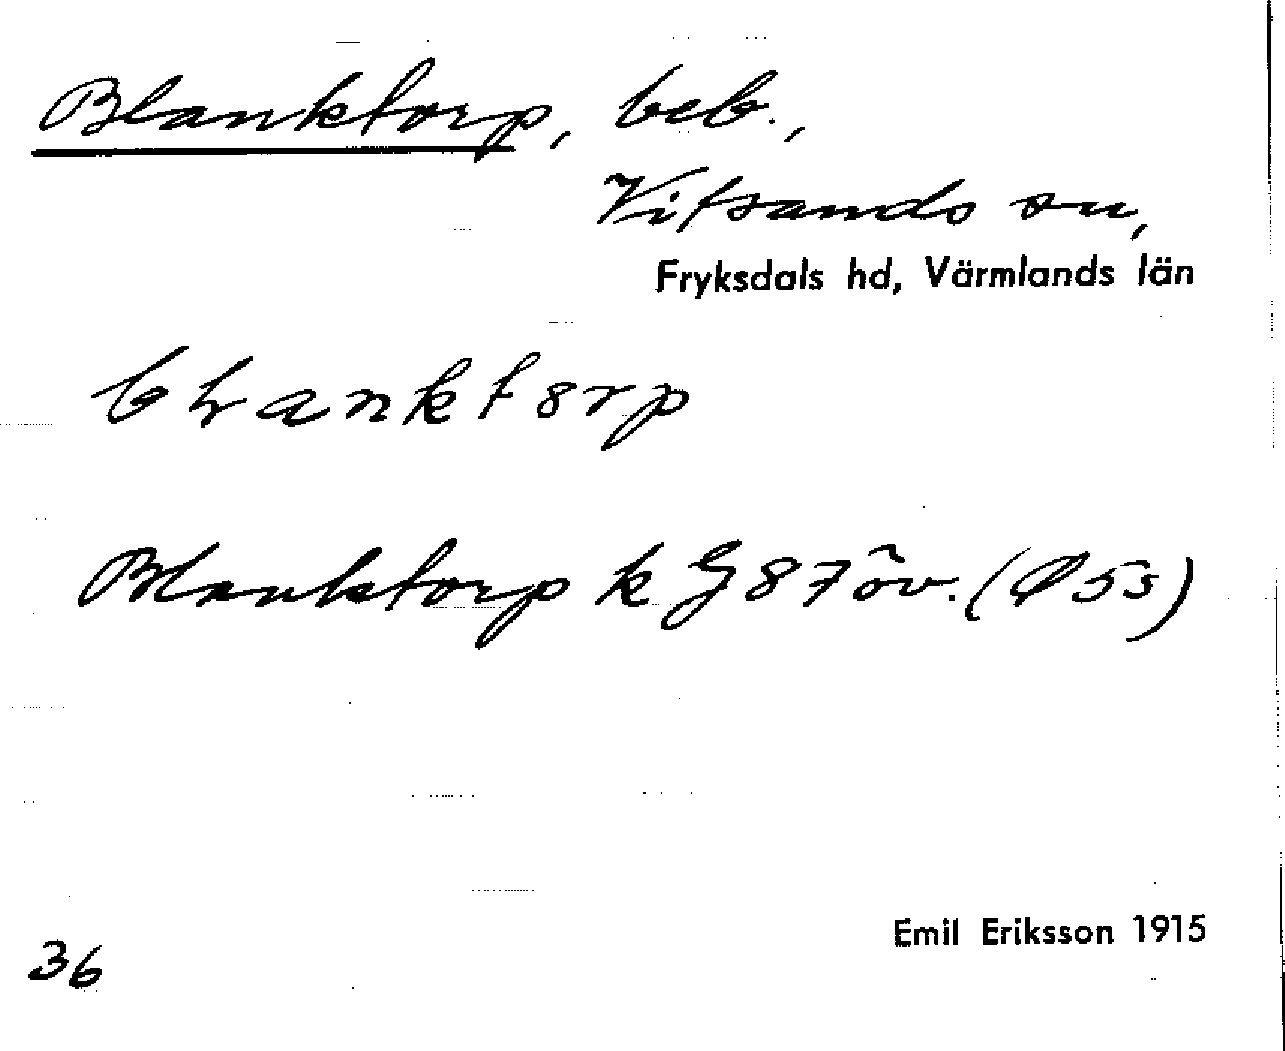 Blanktorp, beb.,
Vitsands sn,
Fryksdals hd, Värmlands län
blanktorp
Blanktorp k G 87 öv. (Ø 5s)
Emil Eriksson 1915
36